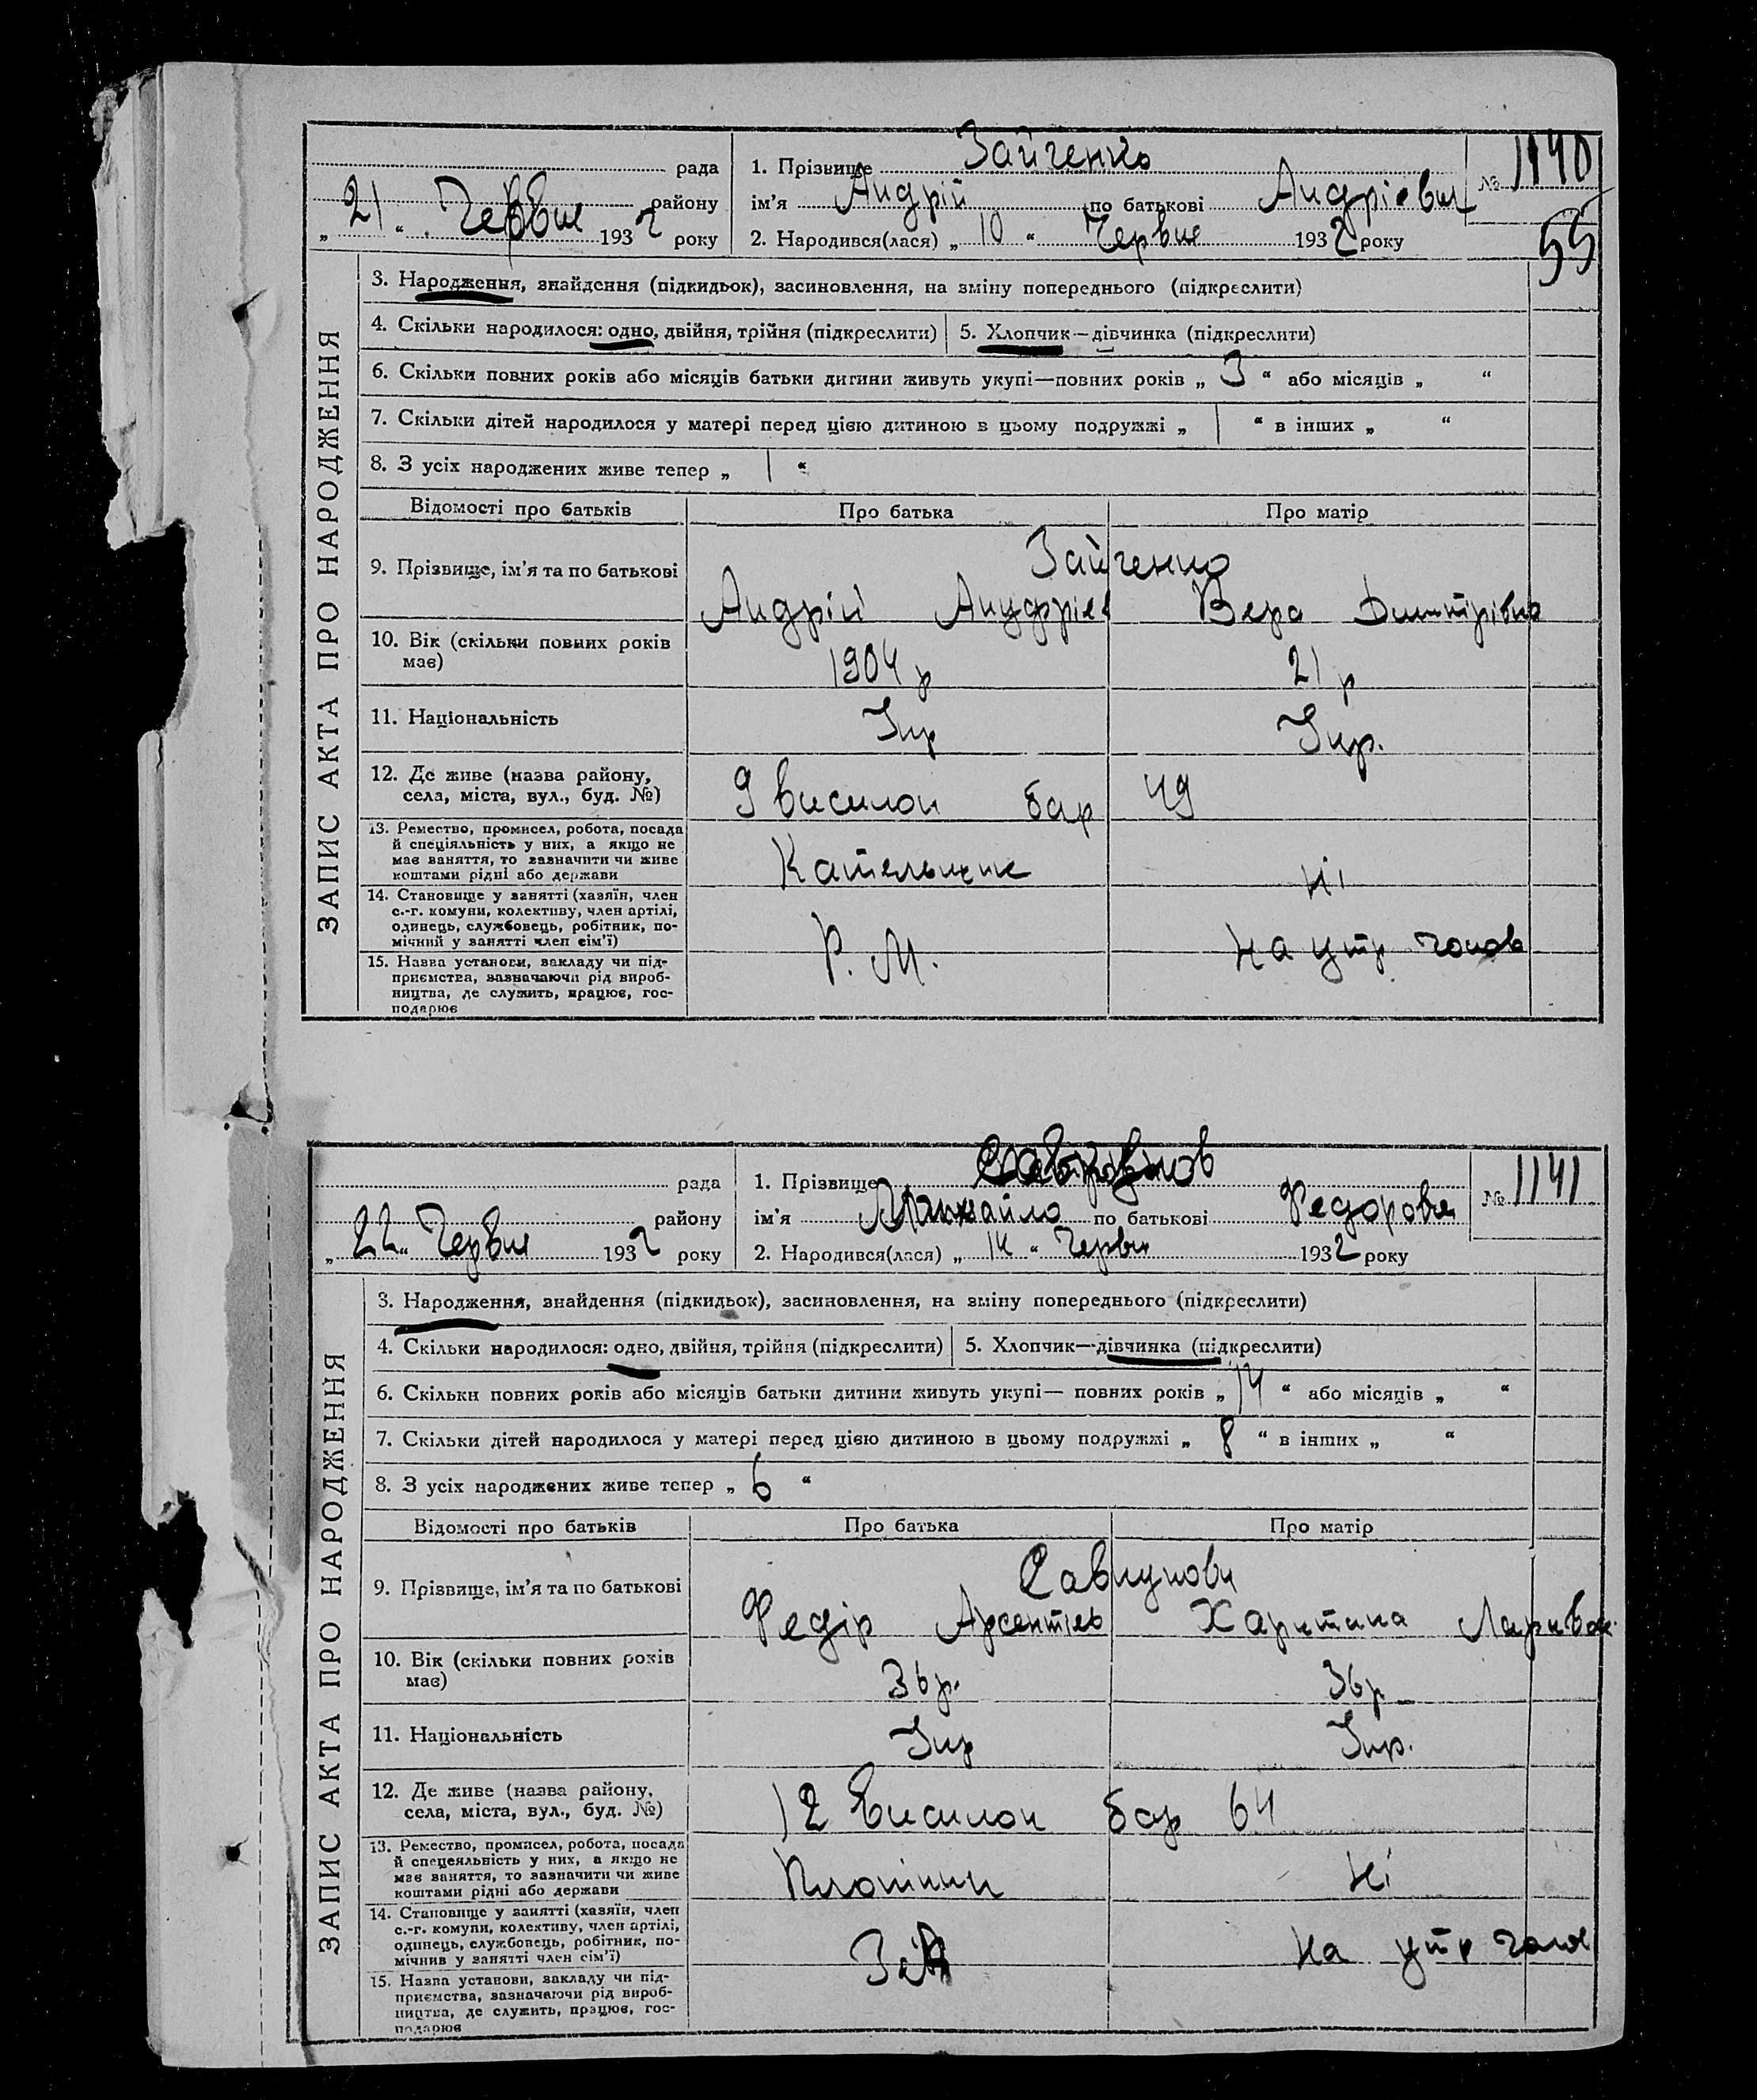 рада
району
„ 21 “ Червня 1932 року
1. Прізвище Зайченко
ім'я Андрій по батькові Андрієвич
2. Народився(лася) „ 10 “ Червня 1932 року
№ 1140
55
ЗАПИС АКТА ПРО НАРОДЖЕННЯ
3. Народження, знайдення (підкидьок), засиновлення, на зміну попереднього (підкреслити)
4. Скільки народилося: одно, двійня, трійня (підкреслити)
5. Хлопчик—дівчинка (підкреслити)
6. Скільки повних років або місяців батьки дитини живуть укупі—повних років „ 3 “ або місяців „ “
7. Скільки дітей народилося у матері перед цією дитиною в цьому подружжі „ 1 “ в інших „ “
8. З усіх народжених живе тепер „ 1 “
Відомості про батьків
Про батька
Про матір
9. Прізвище, ім'я та по батькові
Зайченко
Андрій
Вера Дмитрівна
10. Вік (скільки повних років
має)
1904 р
21 р
11. Національність
Укр
Укр.
12. Де живе (назва району,
села, міста, вул., буд. №)
9 висилок бар 49
13. Ремество, промисел, робота, посада
й спеціяльність у них, а якщо не
має заняття, то зазначити чи живе
коштами рідні або держави
Кательщик
Ні
14. Становище у занятті (хазяїн, член
с.-г. комуни, колективу, член артілі,
одинець, службовець, робітник, по-
мічний у занятті член сім'ї)
Р. М.
на утр чолов
15. Назва установи, закладу чи під-
приємства, зазначаючи рід вироб-
ництва, де служить, працює, гос-
подарює
рада
району
„ 22 “ Червня 1932 року
1. Прізвище
ім'я Михайло по батькові Федорович
2. Народився(лася) „ 14 “ Червня 1932 року
№ 1141
ЗАПИС АКТА ПРО НАРОДЖЕННЯ
3. Народження, знайдення (підкидьок), засиновлення, на зміну попереднього (підкреслити)
4. Скільки народилося: одно, двійня, трійня (підкреслити)
5. Хлопчик—дівчинка (підкреслити)
6. Скільки повних років або місяців батьки дитини живуть укупі— повних років „ 14 “ або місяців „ “
7. Скільки дітей народилося у матері перед цією дитиною в цьому подружжі „ 8 “ в інших „ “
8. З усіх народжених живе тепер „ 6 “
Відомості про батьків
Про батька
Про матір
9. Прізвище, ім'я та по батькові
Федір Арсентієв
Харитина
10. Вік (скільки повних років
має)
36 р.
36 р
11. Національність
Укр
Укр.
12. Де живе (назва району,
села, міста, вул., буд. №)
12 висилок бар 64
13. Ремество, промисел, робота, посада
й спецеяльність у них, а якщо не
має заняття, то зазначити чи живе
коштами рідні або держави
Плотник
Ні
14. Становище у занятті (хазяїн, член
с.-г. комуни, колективу, член артілі,
одинець, службовець, робітник, по-
мічнив у занятті член сім'ї)
на утр чолов
15. Назва установи, закладу чи під-
приємства, зазначаючи рід вироб-
ництва, де служить, працює, гос-
подарює